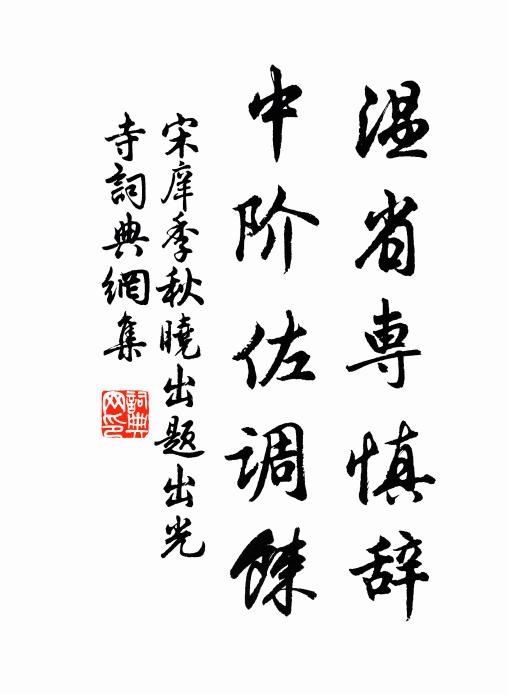 温省専慎辞
中阶佐调餗
宋庠季秋曉出題出光
寺詞典網集
詞典网印